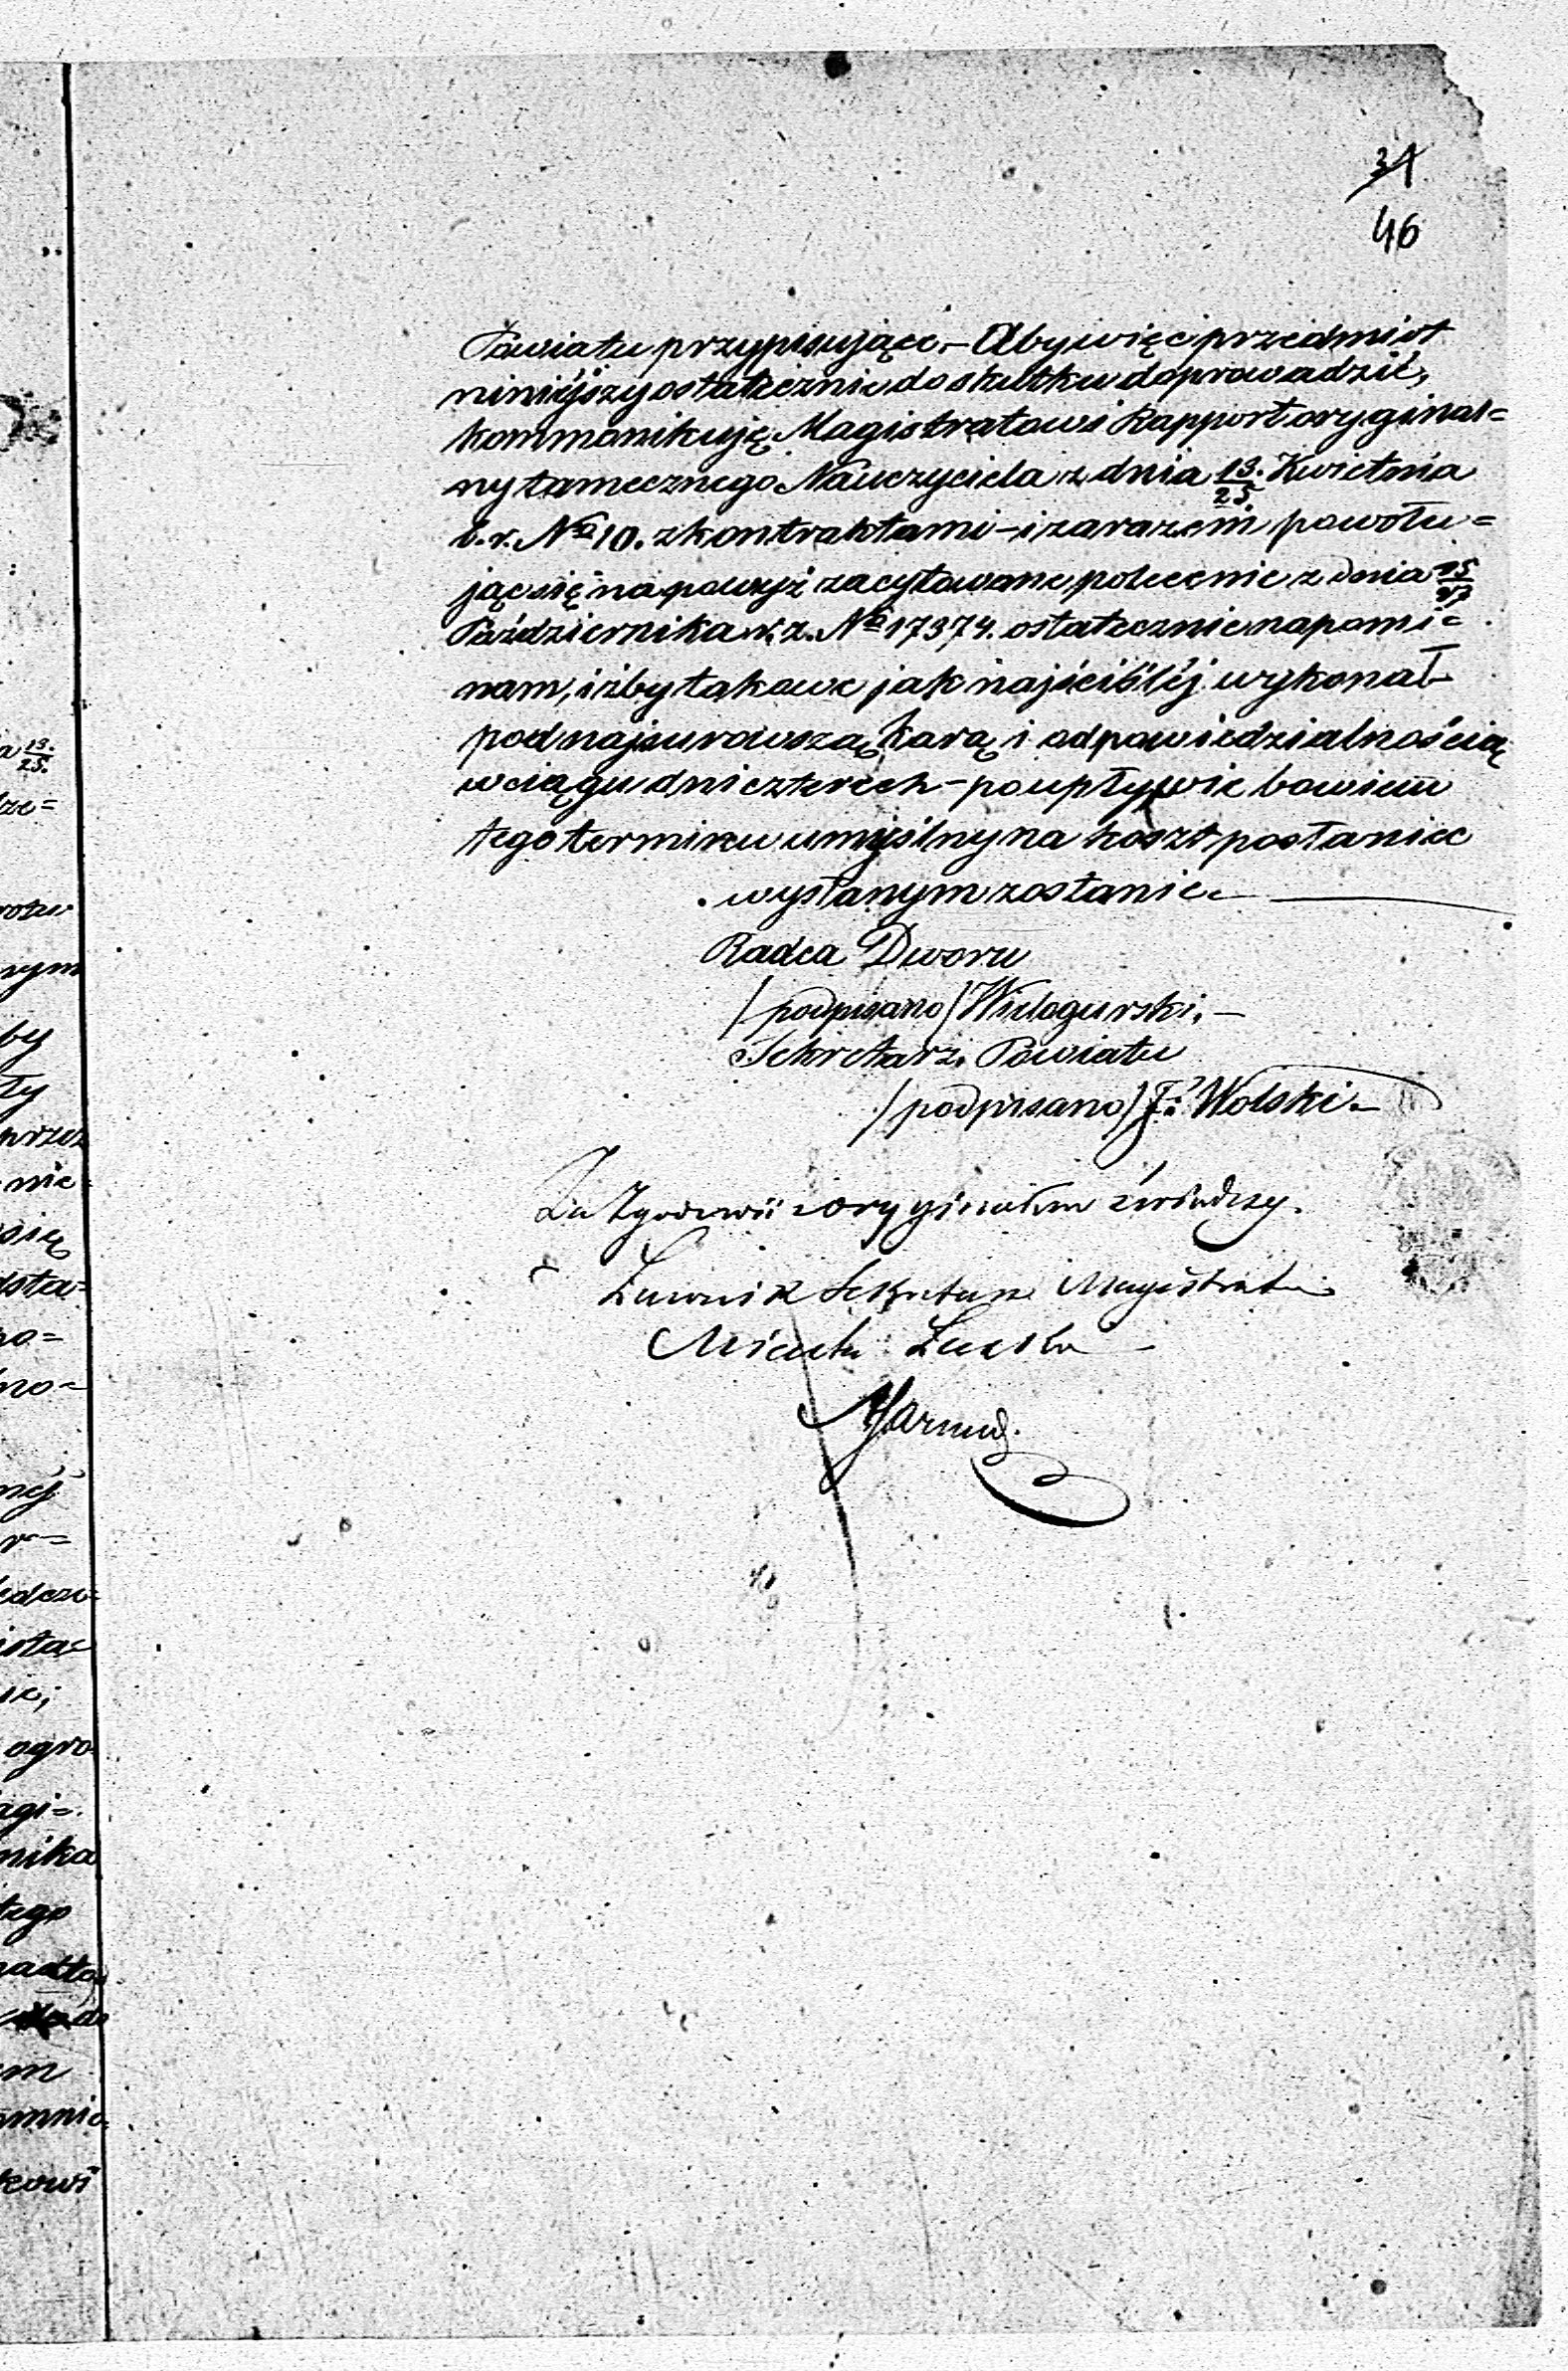 31
46
Powiatu przypisując.– Aby więc przedmiot
niniéjszy ostatecznie do skutku doprowadzić,
kommunikuję Magistratowi Rapport oryginal=
ny tamecznego Nauczyciela z dnia 13/25. Kwietnia
b.r. No 10. z kontraktami – i zarazem powołu=
jąc się na powyż zacytowane polecenie z dnia 15/27
Października r.z. No 17374. ostatecznie napomi=
nam, iżby takowe jak najściśléj wykonał
pod najsurowszą karą i odpowiedzialnością
w ciągu dni czterech – po upływie bowiem
tego terminu umyślny na koszt posłaniec
wysłanym zostanie.
Radca Dworu
/podpisano/ Wielogurski. –
Sekretarz Powiatu
/podpisano/ F: Wolski –
Za Zgodność z oryginałem świadczy.
Ławnik Sekretarz Magistratu
Miasta